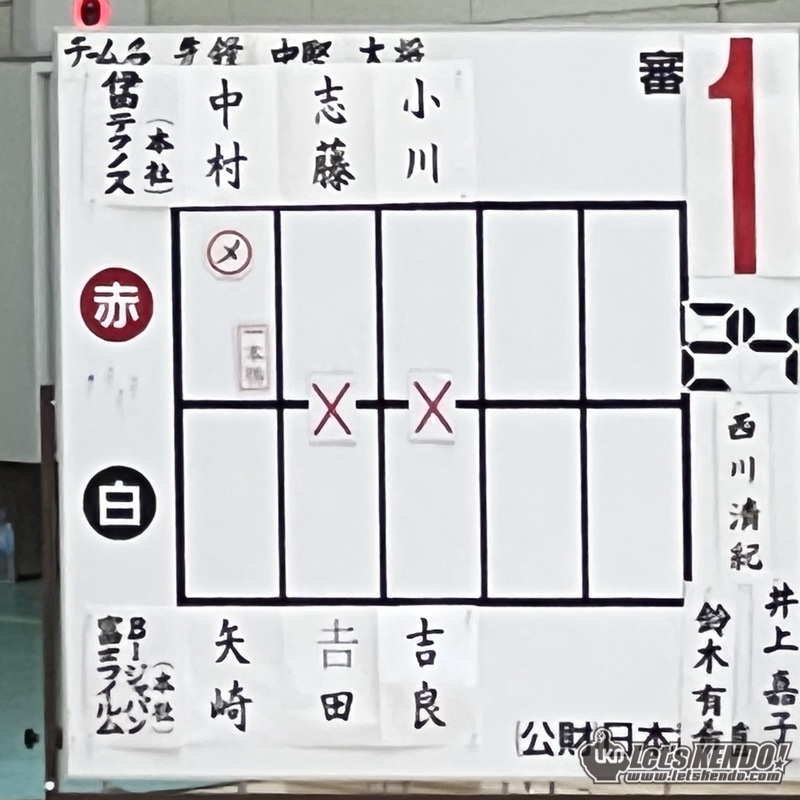 チーム名 先鋒 中堅 大将
伊田テクノス
(本社)
中村
志藤
小川
審
1
24
赤
メ
一本勝
X X
白
西川清紀
井上嘉子
鈴木有
富士フイルム
Bージャパン
(本社)
矢崎
吉田
吉良
(公財)日本
LKD Let's KENDO!
www.letskendo.com